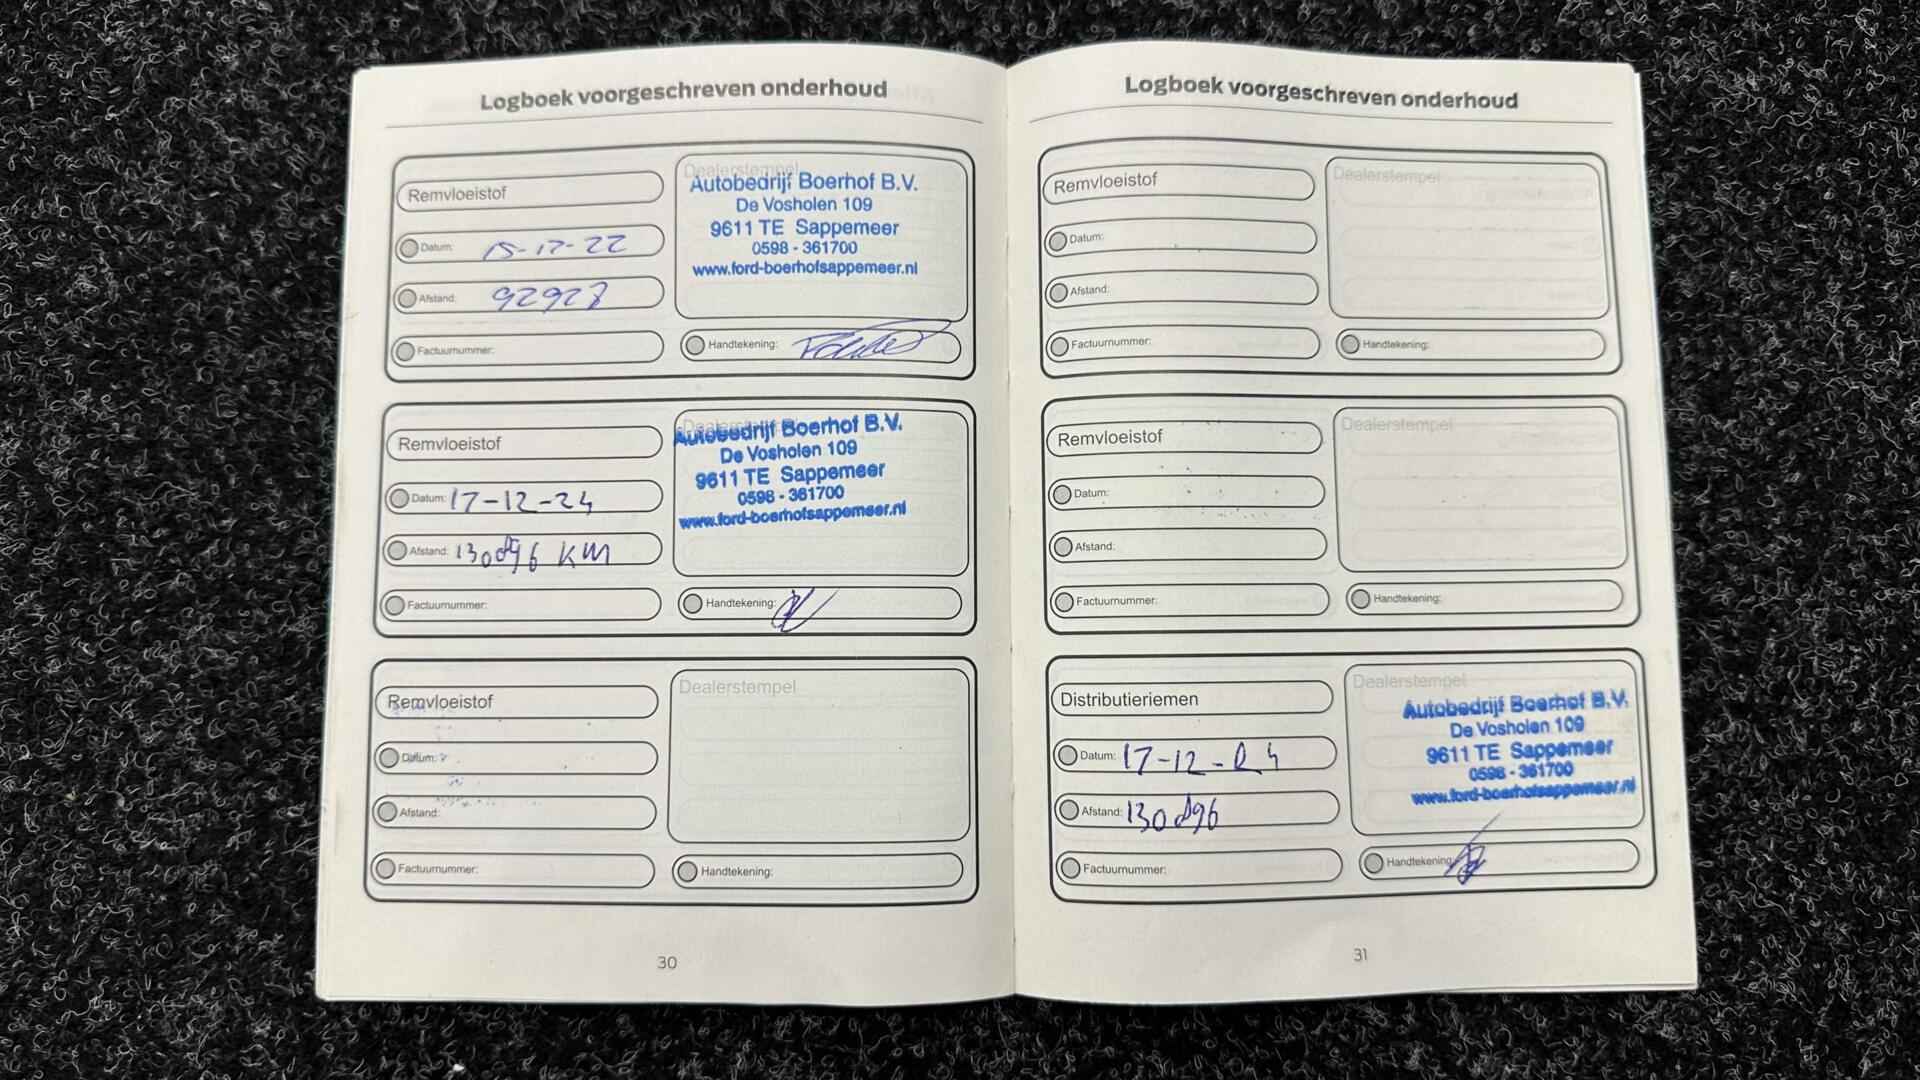 Logboek voorgeschreven onderhoud
Remvloeistof
Dealerstempel
Autobedrijf Boerhof B.V.
De Vosholen 109
9611 TE Sappemeer
0598 - 361700
www.ford-boerhofsappemeer.nl
Datum: 15-12-22
Afstand: 92928
Factuurnummer:
Handtekening:
Remvloeistof
Autobedrijf Boerhof B.V.
De Vosholen 109
9611 TE Sappemeer
0598 - 361700
www.ford-boerhofsappemeer.nl
Datum: 17-12-24
Afstand: 130896 KM
Factuurnummer:
Handtekening:
Remvloeistof
Dealerstempel
Datum:
Afstand:
Factuurnummer:
Handtekening:
30
Logboek voorgeschreven onderhoud
Remvloeistof
Dealerstempel
Datum:
Afstand:
Factuurnummer:
Handtekening:
Remvloeistof
Dealerstempel
Datum:
Afstand:
Factuurnummer:
Handtekening:
Distributieriemen
Dealerstempel
Autobedrijf Boerhof B.V.
De Vosholen 109
9611 TE Sappemeer
0598 - 361700
www.ford-boerhofsappemeer.nl
Datum: 17-12-24
Afstand: 130896
Factuurnummer:
Handtekening:
31